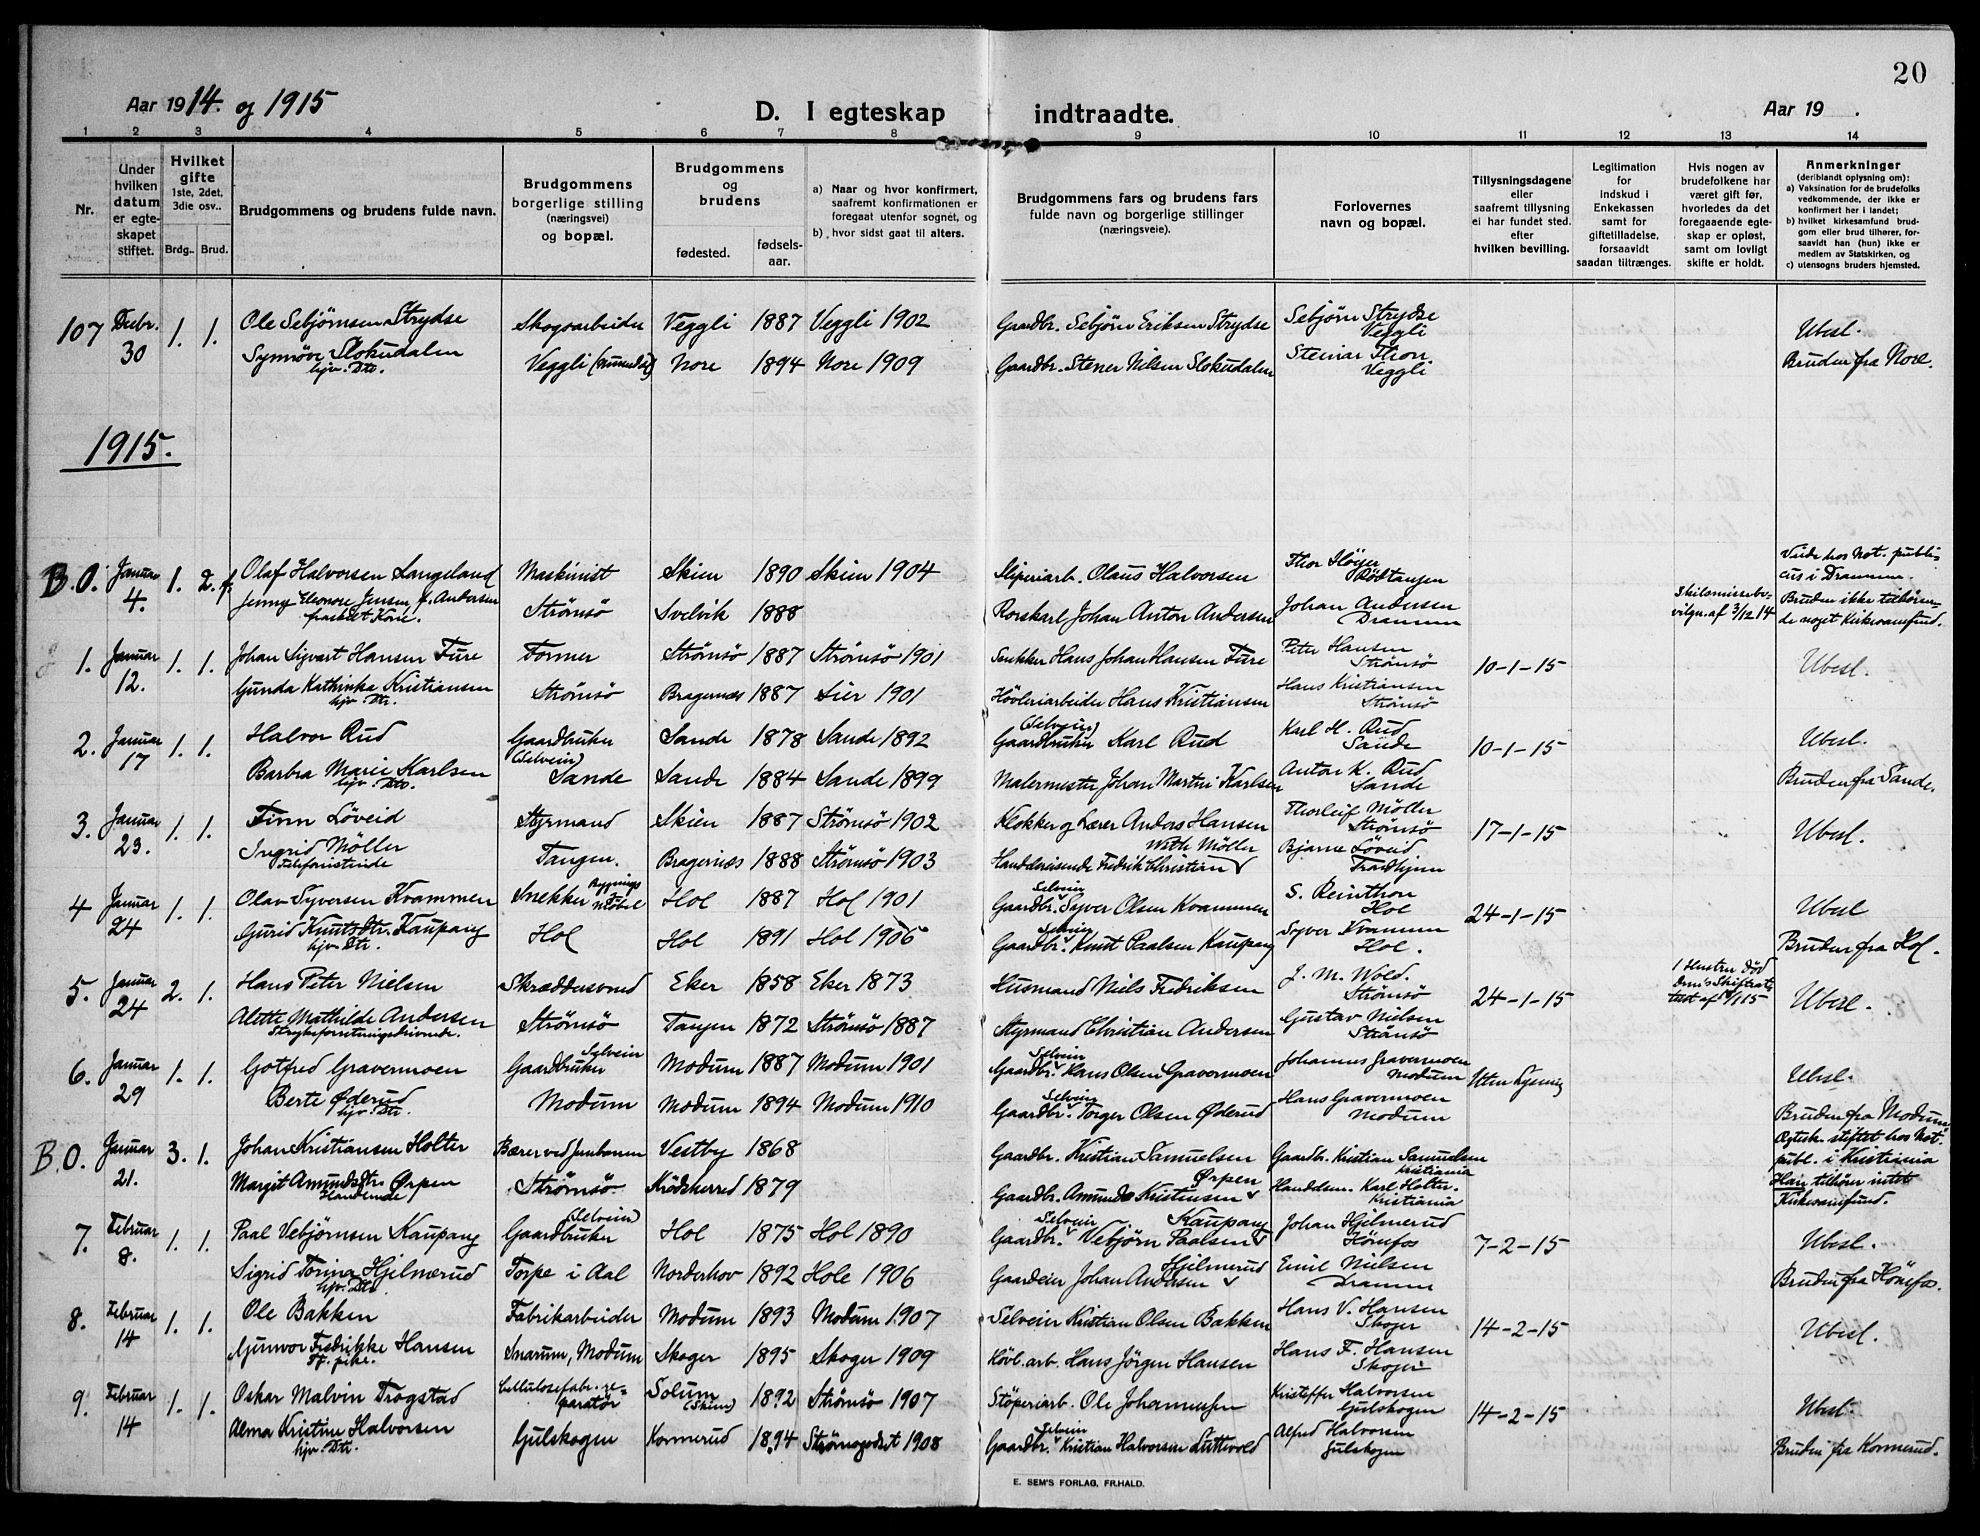 20
Aar 1914. og 1915
D. I egteskap indtraadte.
Aar 19 .
1 2 3 4 5 6 7 8 9 10 11 12 13 14
Nr.
Under hvilken datum er egteskapet stiftet.
Hvilket gifte
1ste, 2det, 3die osv..
Brdg.. Brud.
Brudgommens og brudens fulde navn.
Brudgommens borgerlige stilling (næringsvei) og bopæl.
Brudgommens og brudens
fødested. fødselsaar.
a) Naar og hvor konfirmert, saafremt konfirmationen er foregaat utenfor sognet, og
b) hvor sidst gaat til alters.
Brudgommens fars og brudens fars fulde navn og borgerlige stillinger (næringsveie).
Forlovernes navn og bopæl.
Tillysningsdagene eller saafremt tillysning ei har fundet sted. efter hvilken bevilling.
Legitimation for Indskud i Enkekassen samt for giftetilladelse, forsaavidt saadan tiltrænges.
Hvis nogen av brudefolkene har været gift før, hvorledes da det foregaaende egteskap er opløst, samt om lovligt skifte er holdt.
Anmerkninger
(deriblandt oplysning om):
a) Vaksination for de brudefolks vedkommende, der ikke er konfirmert her i landet;
b) hvilket kirkesamfund brudgom eller brud tilhører, forsaavidt han (hun) ikke er medlem av Statskirken, og
c) utensogns bruders hjemsted.
107 Decbr. 30 1. 1. Ole Sebjørnsen Strydse Skogsarbeider Veggli 1887 Veggli 1902 Gaardbr. Sebjørn Eriksen Strydse Sebjørn Strydse Veggli Ubesl.
Synnöve Slokudalen hjv. Dtr. Veggli (Numedal) Nore 1894 Nore 1909 Gaardbr. Stener Nilsen Slokudalen Steinar Thon. Veggli Bruden fra Nore.
1915.
B.O. Januar 4. 1. 2. f. Olaf Halvorsen Langeland Maskinist Skien 1890 Skien 1904 Sliperiarb. Olaus Halvorsen Thor Höyer Rödtangen Viede hos Not. publicus i Drammen.
Jenny Eleonore Jensen f. Andersen fraskilt Kone. Strömsö Svelvik 1888 Rorskarl Johan Anton Andersen Johan Andersen Drammen Skilsmissebevilgn. af 3/12 14 Bruden ikke tilhörende noget Kirkesamfund.
1. Januar 12. 1. 1. Johan Sigvart Hansen Fure Former Strömsö 1887 Strömsö 1901 Snekker Hans Johan Hansen Fure Peter Hansen Strömsö 10-1-15 Ubesl.
Gunda Kathinka Kristiansen hjv. Dtr. Strömsö Bragernæs 1887 Lier 1901 Hövleriarbeider Hans Kristiansen Hans Kristiansen Strömsö
2. Januar 17 1. 1. Halvor Rud Gaardbruker (Selveier) Sande 1878 Sande 1892 Gaardbruker (Selveier) Karl Rud Karl H. Rud Sande 10-1-15 Ubesl.
Barbra Marie Karlsen hjv. Dtr. Sande Sande 1884 Sande 1899 Malermester Johan Martin Karlsen Anton K. Rud Sande Bruden fra Sande.
3. Januar 23. 1. 1. Finn Löveid Styrmand Skien 1887 Strömsö 1902 Klokker og Lærer Anders Hansen Thorleif Möller Strömsö 17-1-15 Ubesl.
Ingrid Möller Telefonistinde Tangen. Bragernæs 1888 Strömsö 1903 Handelsreisende Fredrik Christian With Möller Bjarne Löveid Trondhjem
4 Januar 24 1. 1. Olav Syversen Kvammen Snekker Bygnings Möbel Hol 1887 Hol 1901 Gaardbr. Selveier Syver Olsen Kvammen S. Reinthon Hol 24-1-15 Ubesl
Gurid Knutsdtr. Kaupang hjv. Dtr. Hol Hol 1891 Hol 1906 Gaardbr. Selveier Knut Paalsen Kaupang Syver Kvammen Hol. Bruden fra Hol.
5. Januar 24 2. 1. Hans Peter Nielsen Skræddersvend Eker 1858 Eker 1873 Husmand Niels Fredriksen J. M. Wold. Strömsö 24-1-15 1 Hustru död Drm's Skifteattest af Ubesl.
Alette Mathilde Andersen Strykeforretningsdrivende. Strömsö Tangen 1872 Strömsö 1887 Styrmand Christian Andersen Gustav Nielsen Strömsö
6. Januar 29 1. 1. Gotfred Gravermoen Gaardbruker Selveier Modum 1887 Modum 1901 Gaardbr. Selveier Hans Olsen Gravermoen Johannes Gravermoen Modum Uten Lysning Ubesl.
Berte Öderud hjv. Dtr. Modum Modum 1894 Modum 1910 Gaardbr. Selveier Torger Olsen Öderud Hans Gravermoen Modum Bruden fra Modum
B.O. Januar 21. 3. 1. Johan Kristiansen Holter Bærer ved Jernbanen Vestby 1868 Gaardbr. Kristian Samuelsen Gaardbr. Kristian Samuelsen Kristiania Egtesk. stiftet hos Not. publ. i Kristiania
Margit Amundsdtr. Ørpen Handlende Strömsö Krödsherred 1879 Gaardbr. Amund Kristensen Ørpen Handelsm. Karl Holter. Kristiania Han tilhörer intet Kirkesamfund.
7. Februar 8. 1. 1. Paal Vebjörnsen Kaupang Gaardbruker (Selveier) Hol 1875 Hol 1890 Gaardbr. Selveier Vebjörn Paalsen Kaupang Johan Hjelmerud Hönefos 7-2-15 Ubesl.
Sigrid Torina Hjelmerud hjv. Dtr. Torpe i Aal Norderhov 1892 Hole 1906 Gaardeier Johan Andersen Hjelmerud Emil Nielsen Drammen Bruden fra Hönefos.
8. Februar 14 1. 1. Ole Bakken Fabrikarbeider Modum 1893 Modum 1907 Selveier Kristian Olsen Bakken Hans V. Hansen Skoger 14-2-15 Ubesl.
Gunvor Fredrikke Hansen Tj. pike. Snarum, Modum Skoger 1895 Skoger 1909 Hövl. arb. Hans Jörgen Hansen Hans F. Hansen Skoger
9. Februar 14 1. 1. Oskar Malvin Trogstad Cellulosefabr. reparatör Solum (Skien) 1892 Strömsö 1907 Stöperiarb. Ole Johannessen Kristoffer Halvorsen Gulskogen 14-2-15 Ubesl.
Alma Kristine Halvorsen hjv. Dtr. Gulskogen Konnerud 1894 Strömsgodset 1908 Gaardbr. Selveier Kristian Halvorsen Luttvold Alfred Halvorsen Gulskogen Bruden fra Konnerud.
E. SEM'S FORLAG, FR.HALD.